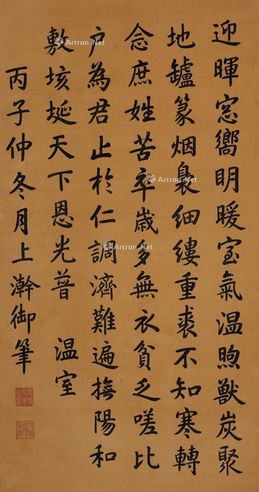 迎暉窓嚮明暖室氣温煦獸炭聚
地鑪篆烟裊細縷重裘不知寒轉
念庶姓苦卒歲多無衣貧乏嗟比
户為君止於仁調濟難遍撫陽和
敷垓埏天下恩光普 温室
丙子仲冬月上澣御筆